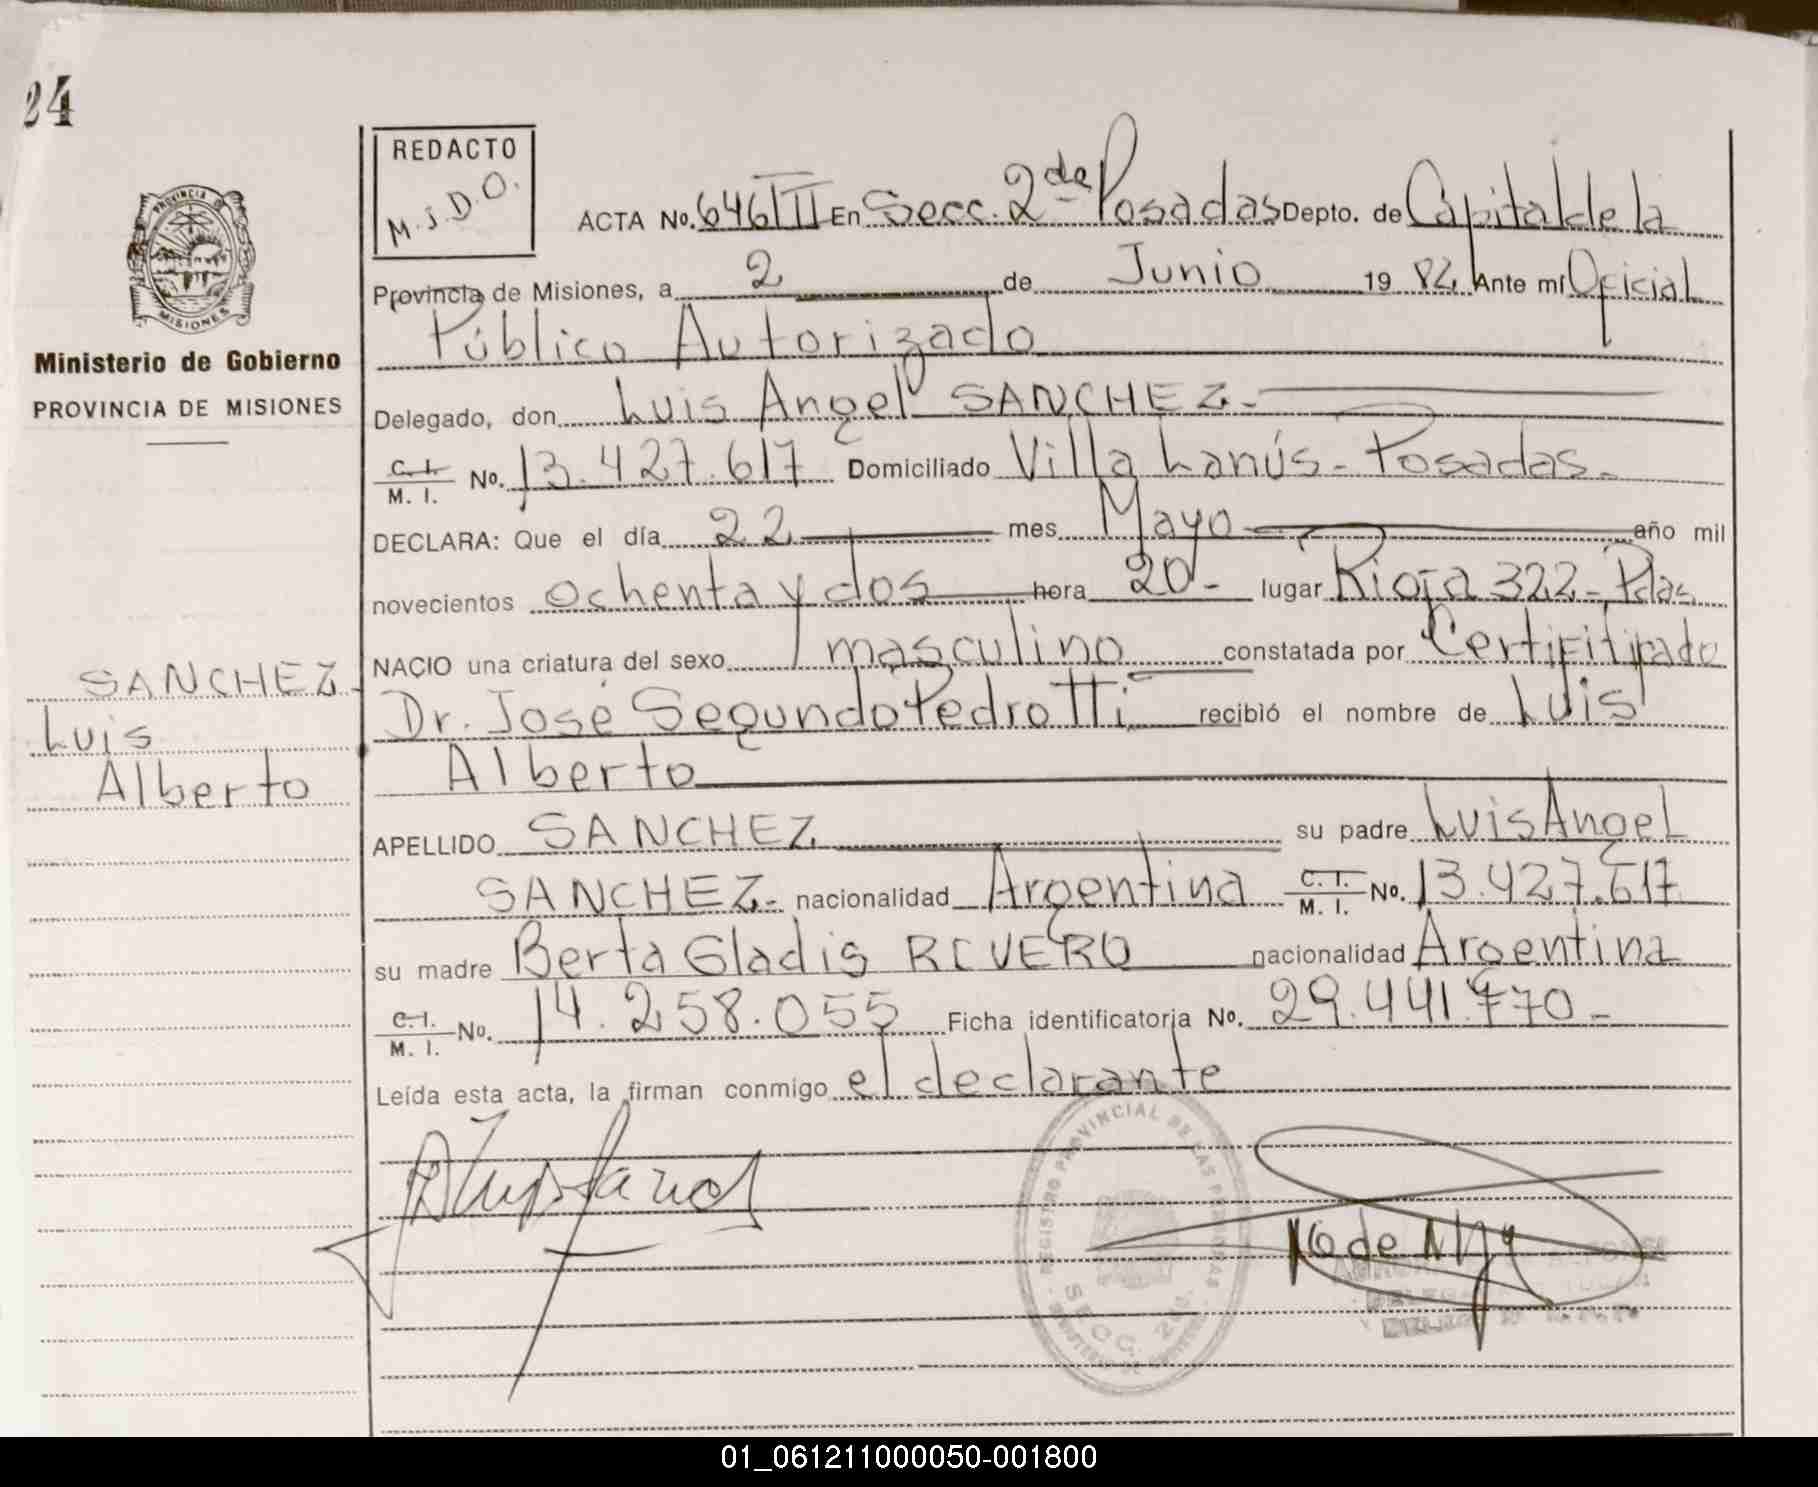 24
REDACTO
M.J.D.O.
PROVINCIA D
MISIONES
Ministerio de Gobierno
PROVINCIA DE MISIONES
ACTA No. 646 III En Secc. 2da Posadas Depto. de Capital de la
Provincia de Misiones, a 2 de Junio 19 82 Ante mí Oficial
Público Autorizado
Delegado, don Luis Angel SANCHEZ.-
C. I. M. I. No. 13.427.617 Domiciliado Villa Lanús - Posadas.
DECLARA: Que el día 22 mes Mayo año mil
novecientos ochenta y dos hora 20 - lugar Rioja 322 - Pdas
NACIO una criatura del sexo masculino constatada por Certifitipado
SANCHEZ
Dr. José Segundo Pedrotti recibió el nombre de Luis
Luis
Alberto
Alberto
APELLIDO SANCHEZ su padre Luis Angel
SANCHEZ.- nacionalidad Argentina C. I. M. I. No. 13.427.617
su madre Berta Gladis RIVERO nacionalidad Argentina
C. I. M. I. No. 14.258.055 Ficha identificatoria No. 29.441.770 -
Leída esta acta, la firman conmigo el declarante
REGISTRO PROVINCIAL DE LAS PERSONAS
SECC. 2da.
01_061211000050-001800